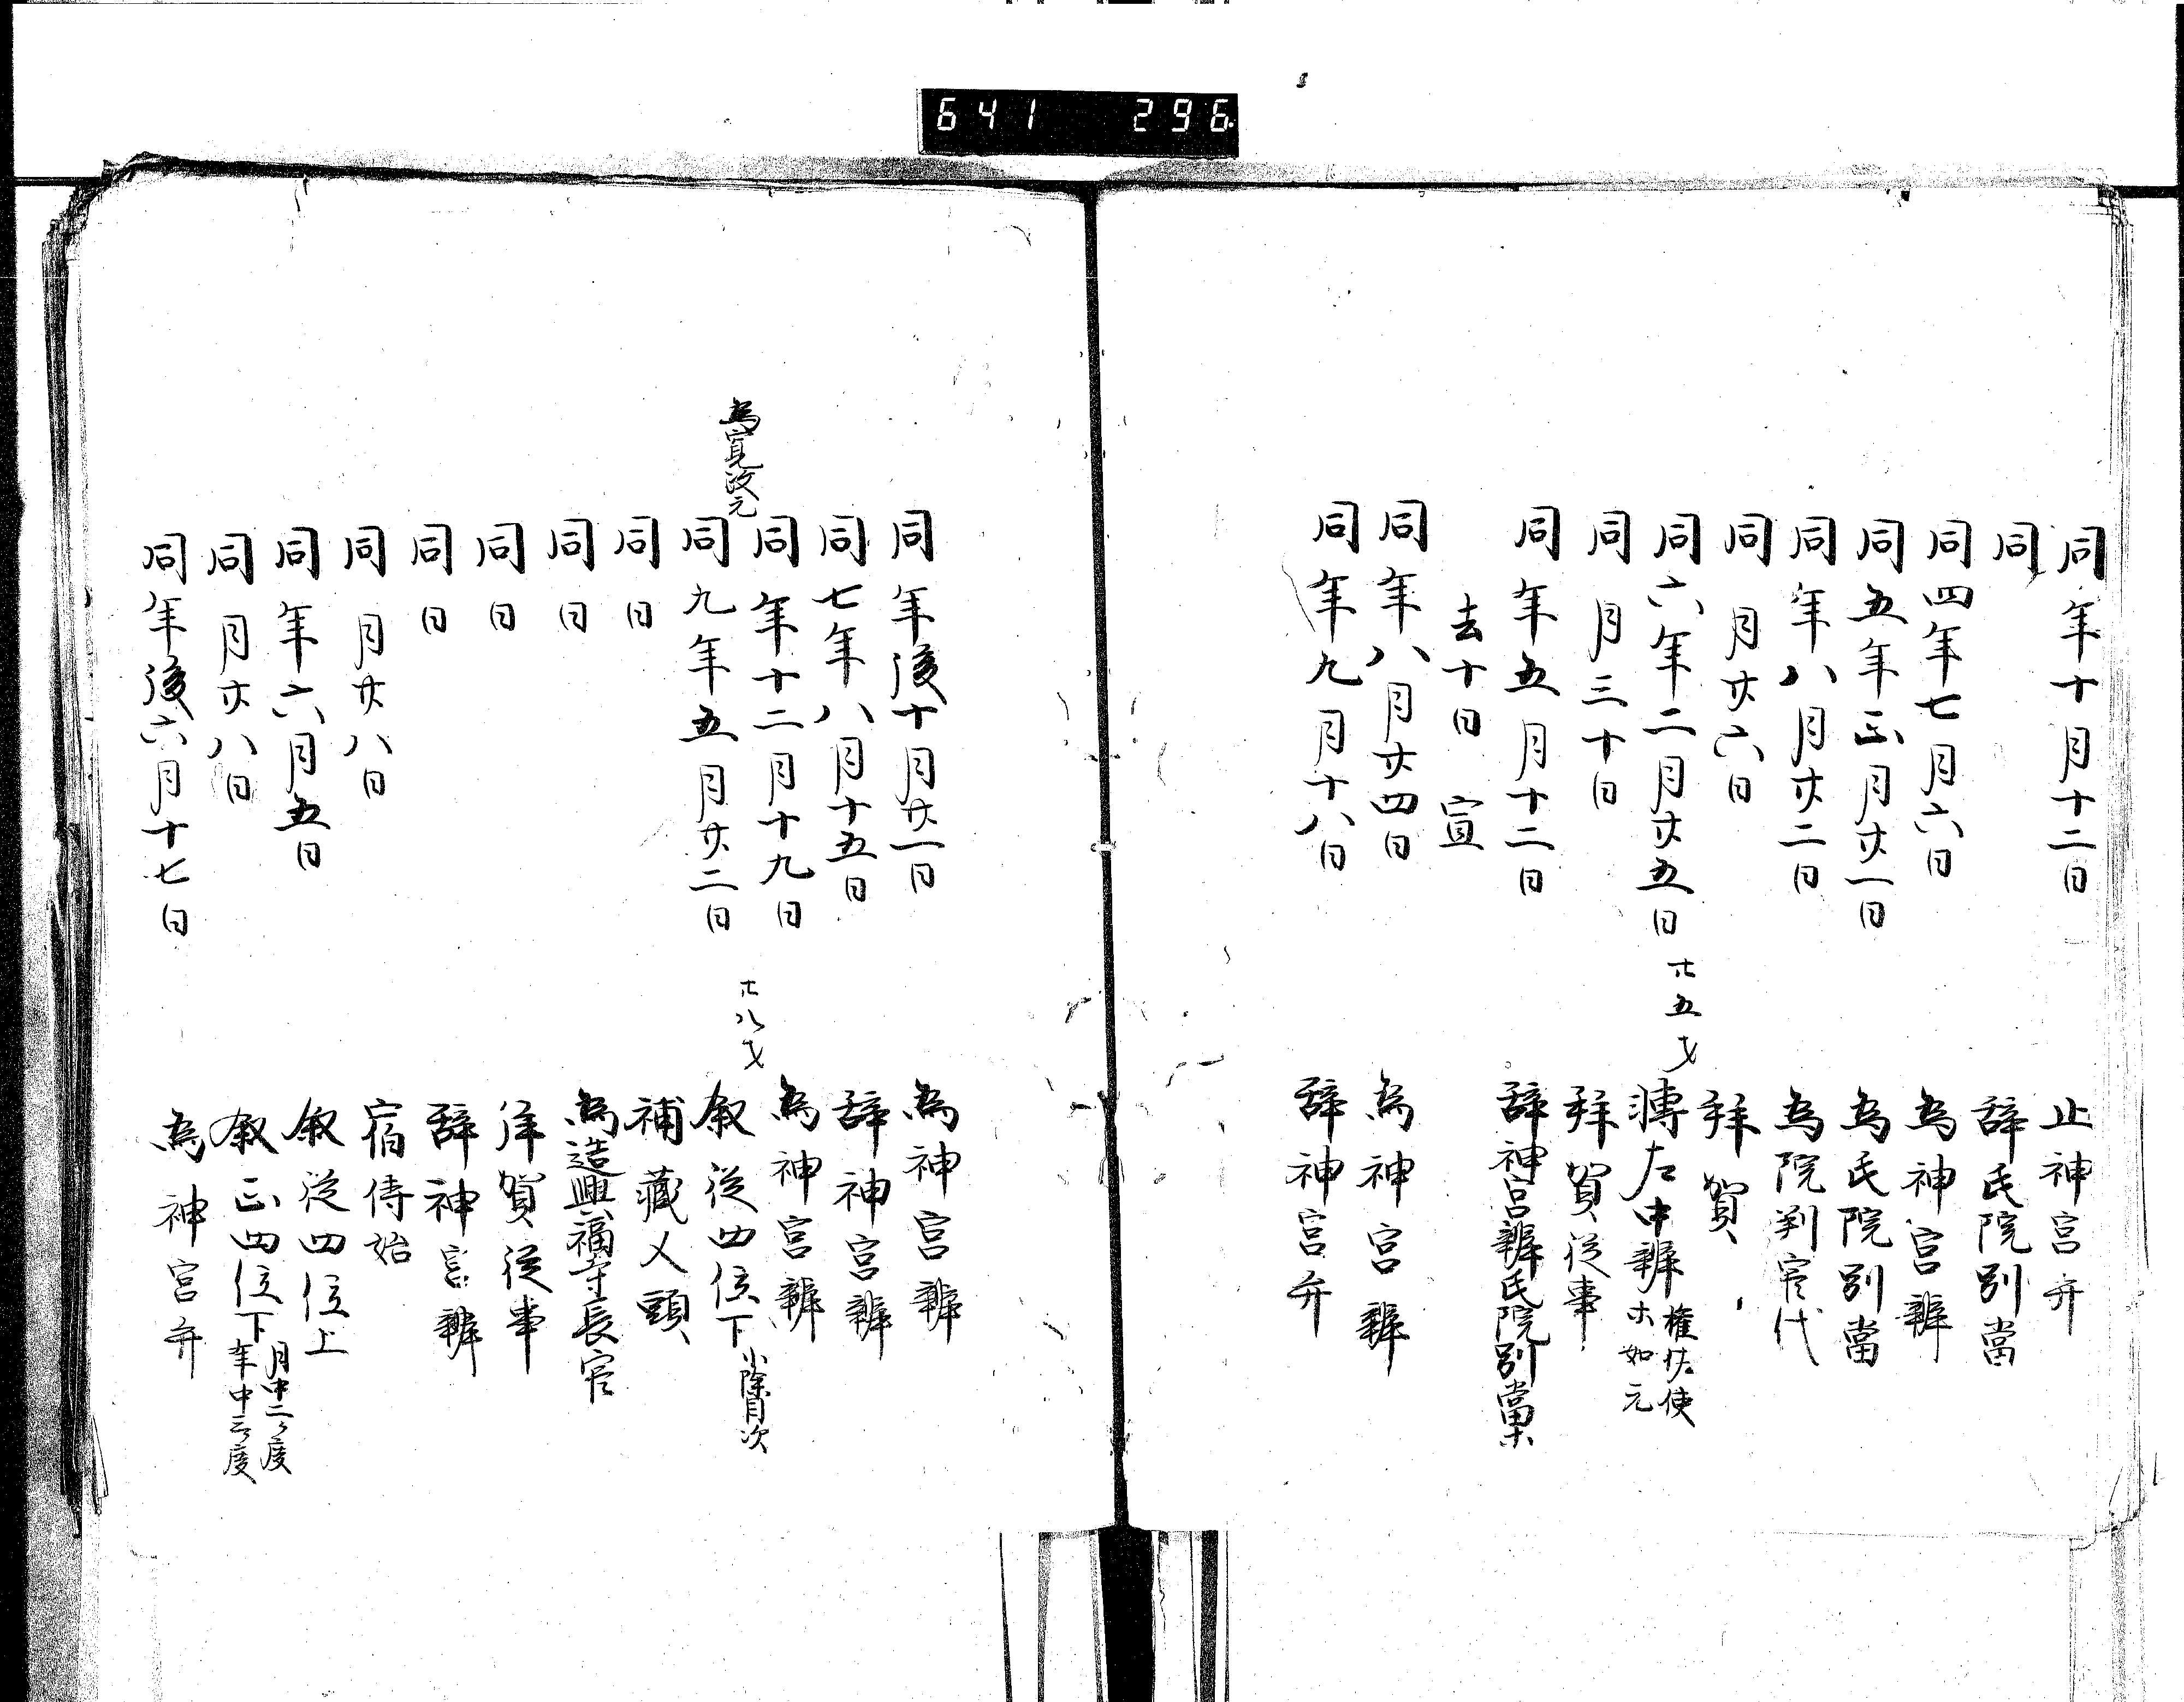 641 296
同年十月十二日 止神宮弁
同 辞氏院別當
同四年七月六日 為神宮辨
同五年正月廿一日 為氏院別當
同年八月廿二日 為院判官代
同月廿六日 拜賀
同六年二月廿五日 廿五才 轉左中辨 權佐使
木如元
同月三十日 拜賀従事
同年五月十二日 辞神宮辨氏院別當木
去十日 宣
同年八月廿四日 為神宮辨
同年九月十八日 辞神宮弁
同年後十月廿一日 為神宮辨
同七年八月十五日 辞神宮辨
同年十二月十九日 為神宮辨
為寛政元
同九年五月廿二日 廿八才 叙従四位下 小除目次
同日 補藏人頭
同日 為造興福寺長官
同日 拜賀従事
同日 辞神宮辨
同月廿八日 宿侍始
同年六月五日 叙従四位上
同月廿八日 叙正四位下 月中二ヶ度
年中三ヶ度
同年後六月十七日 為神宮弁